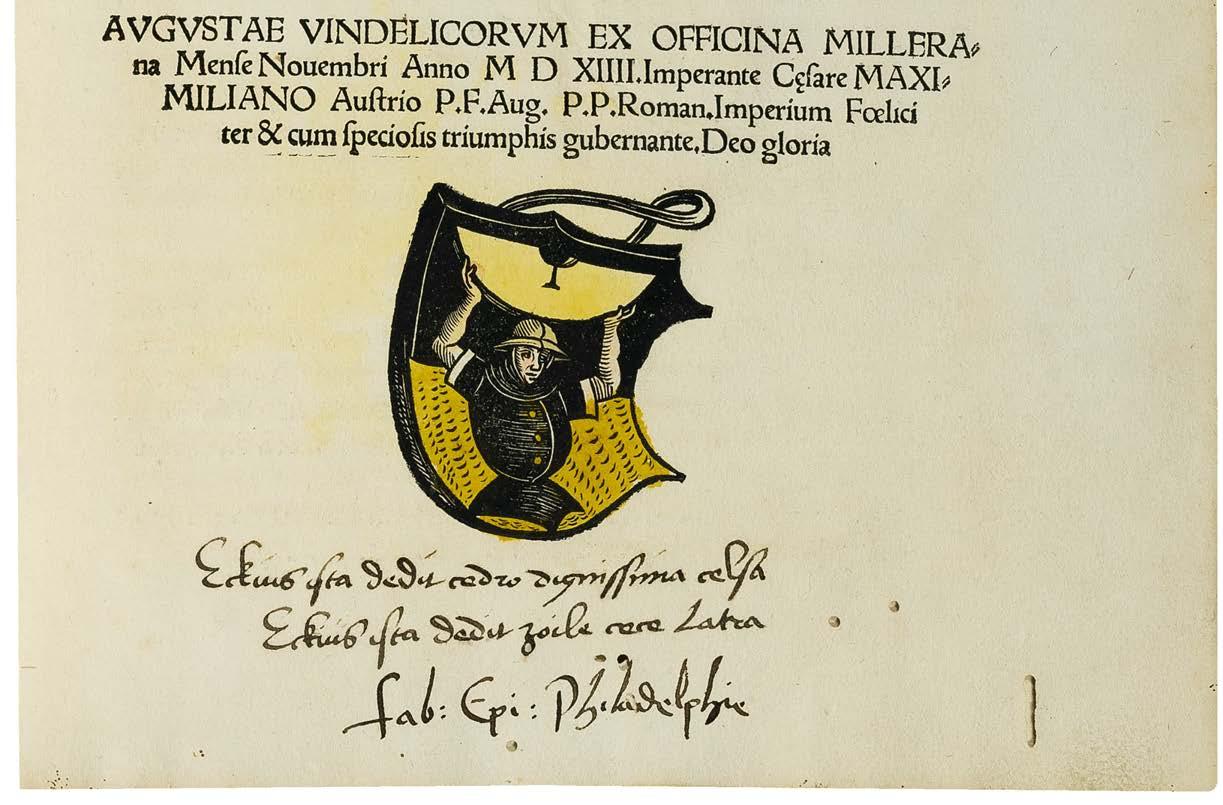 AVGVSTAE VINDELICORVM EX OFFICINA MILLERA⸗
na Menſe Nouembri Anno M D XIIII.Imperante Cęſare MAXI⸗
MILIANO Auſtrio P.F.Aug. P.P.Roman.Imperium Fœlici
ter & cum ſpecioſis triumphis gubernante.Deo gloria
Eckius iſta dedit cedro digniſſima celſa
Eckius iſta dedit zoile cece Latra
fab: Epi: Philadelphie